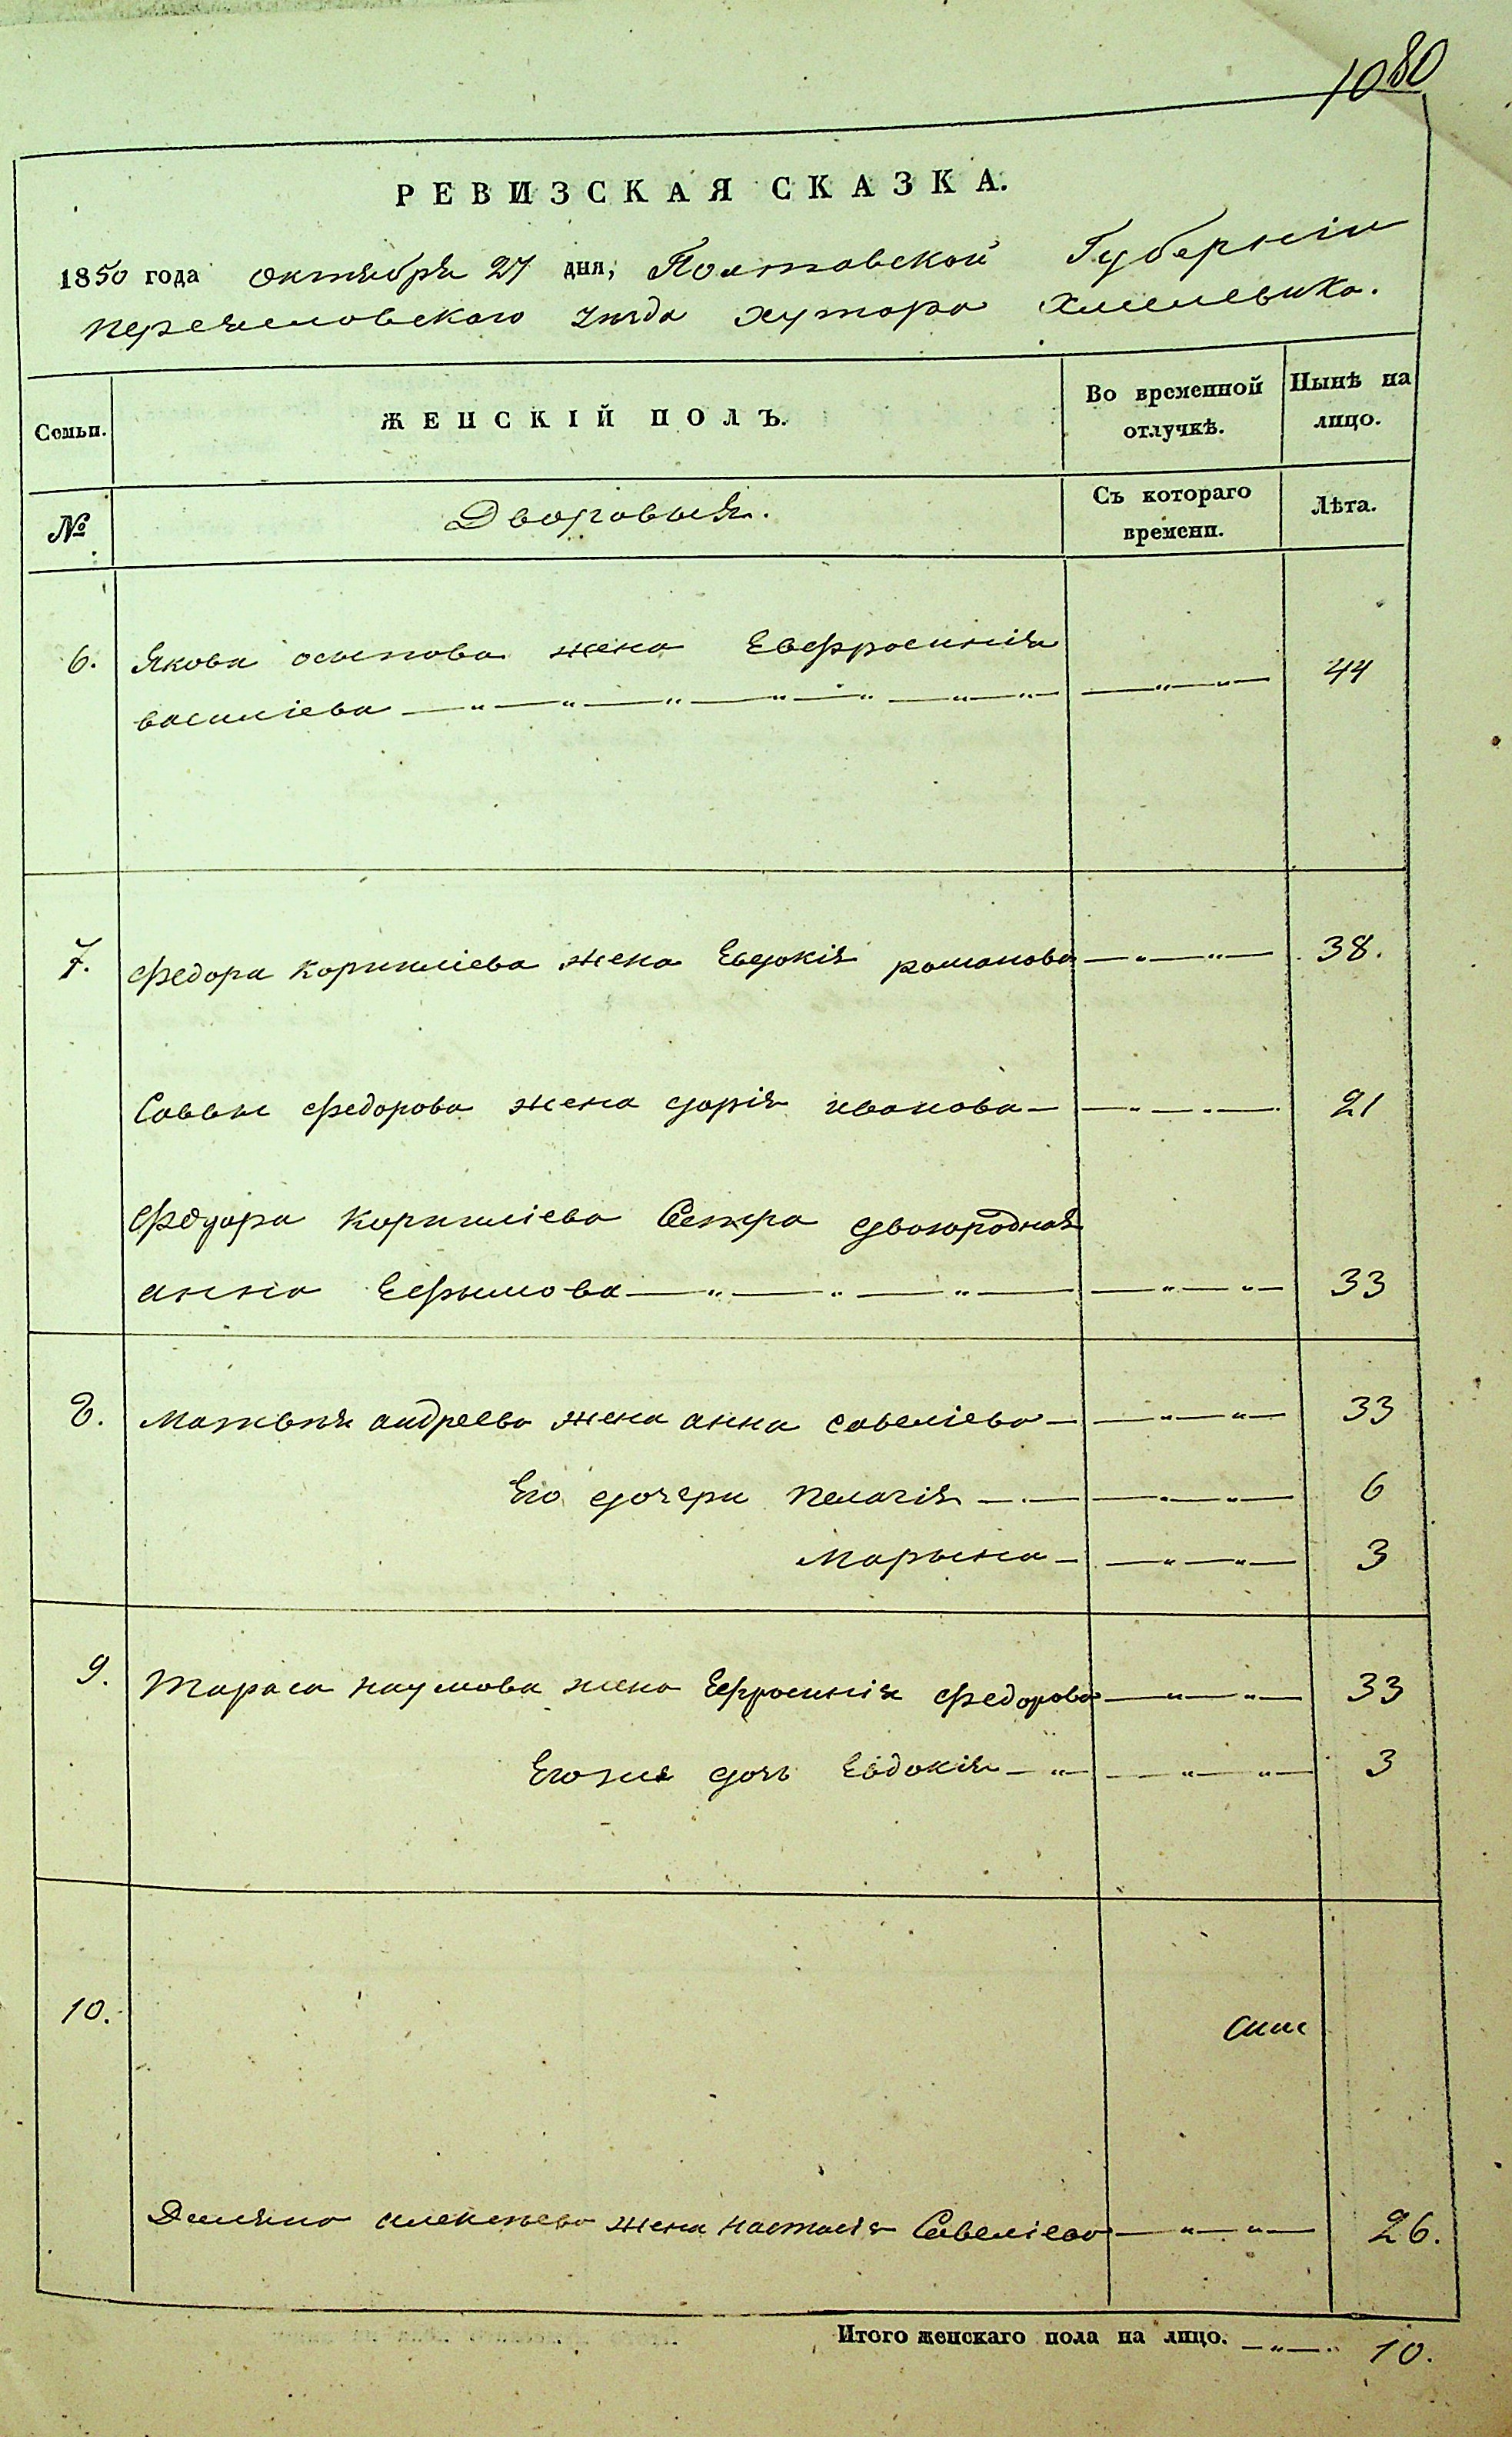 1080
РЕВИЗСКАЯ СКАЗКА.
1850 года октября 27 дня, Полтавской Губерніи
переяславскаго уезда хутора Хмелевика.
Семьи. ЖЕНСКІЙ ПОЛЪ. Во временной отлучкѣ. Нынѣ на лицо.
№ Дворовыя. Съ котораго времени. Лѣта.
6. Якова осипова жена Евфросинія
василіева 44
7. Федора корниліева жена Евдокія романова 38.
Саввы федорова жена дарія иванова 21
Федора Корниліева Сестра двоюродная
анна Ефимова 33
8. матвѣя андреева жена анна савеліева 33
Его дочери пелагія 6
Марына 3
9. Тараса наумова жена Ефросинія федорова 33
Егожъ дочь Евдокія 3
10.
Демяна алексѣева жена настасія Савеліева 26.
Итого женскаго пола на лицо. 10.